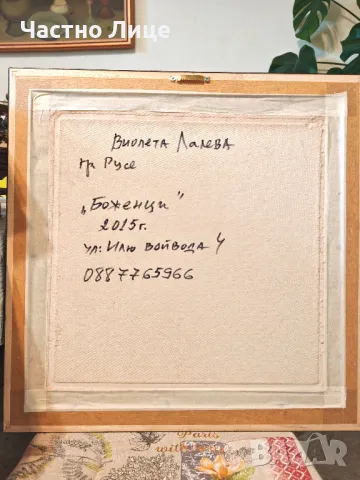 Частно Лице
Виолета Лалева
гр Русе
„Боженци"
2015г.
ул: Илю войвода 4
0887765966
Paris
BAZAR